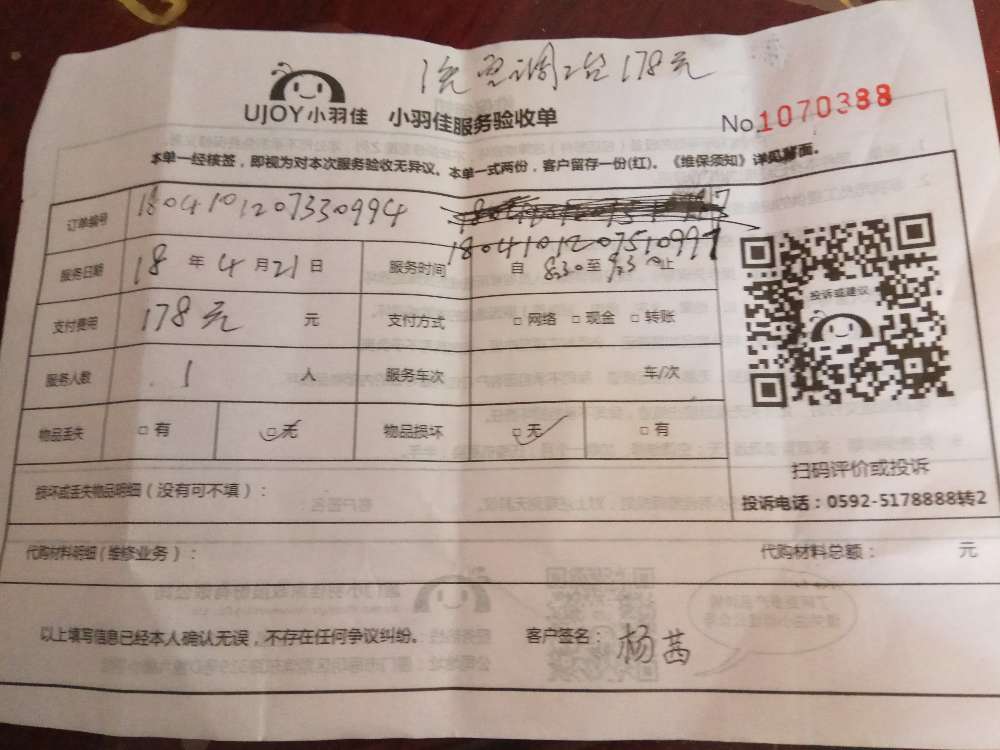 洗空调2台178元
UJOY小羽佳 小羽佳服务验收单
No.1070388
本单一经核签，即视为对本次服务验收无异议。本单一式两份，客户留存一份(红)。《维保须知》详见背面。
订单编号 1804101207330994
180410120751099
服务日期 18 年 4 月 21 日 服务时间 自 8:30 至 9:30 止
支付费用 178元 元 支付方式 □ 网络 □ 现金 □ 转账
服务人数 1 人 服务车次 车/次
物品丢失 □ 有 □ 无 物品损坏 □ 无 □ 有
投诉或建议
扫码评价或投诉
投诉电话：0592-5178888转2
损坏或丢失物品明细（没有可不填）：
代购材料明细（维修业务）： 代购材料总额： 元
以上填写信息已经本人确认无误，不存在任何争议纠纷。 客户签名：杨茜